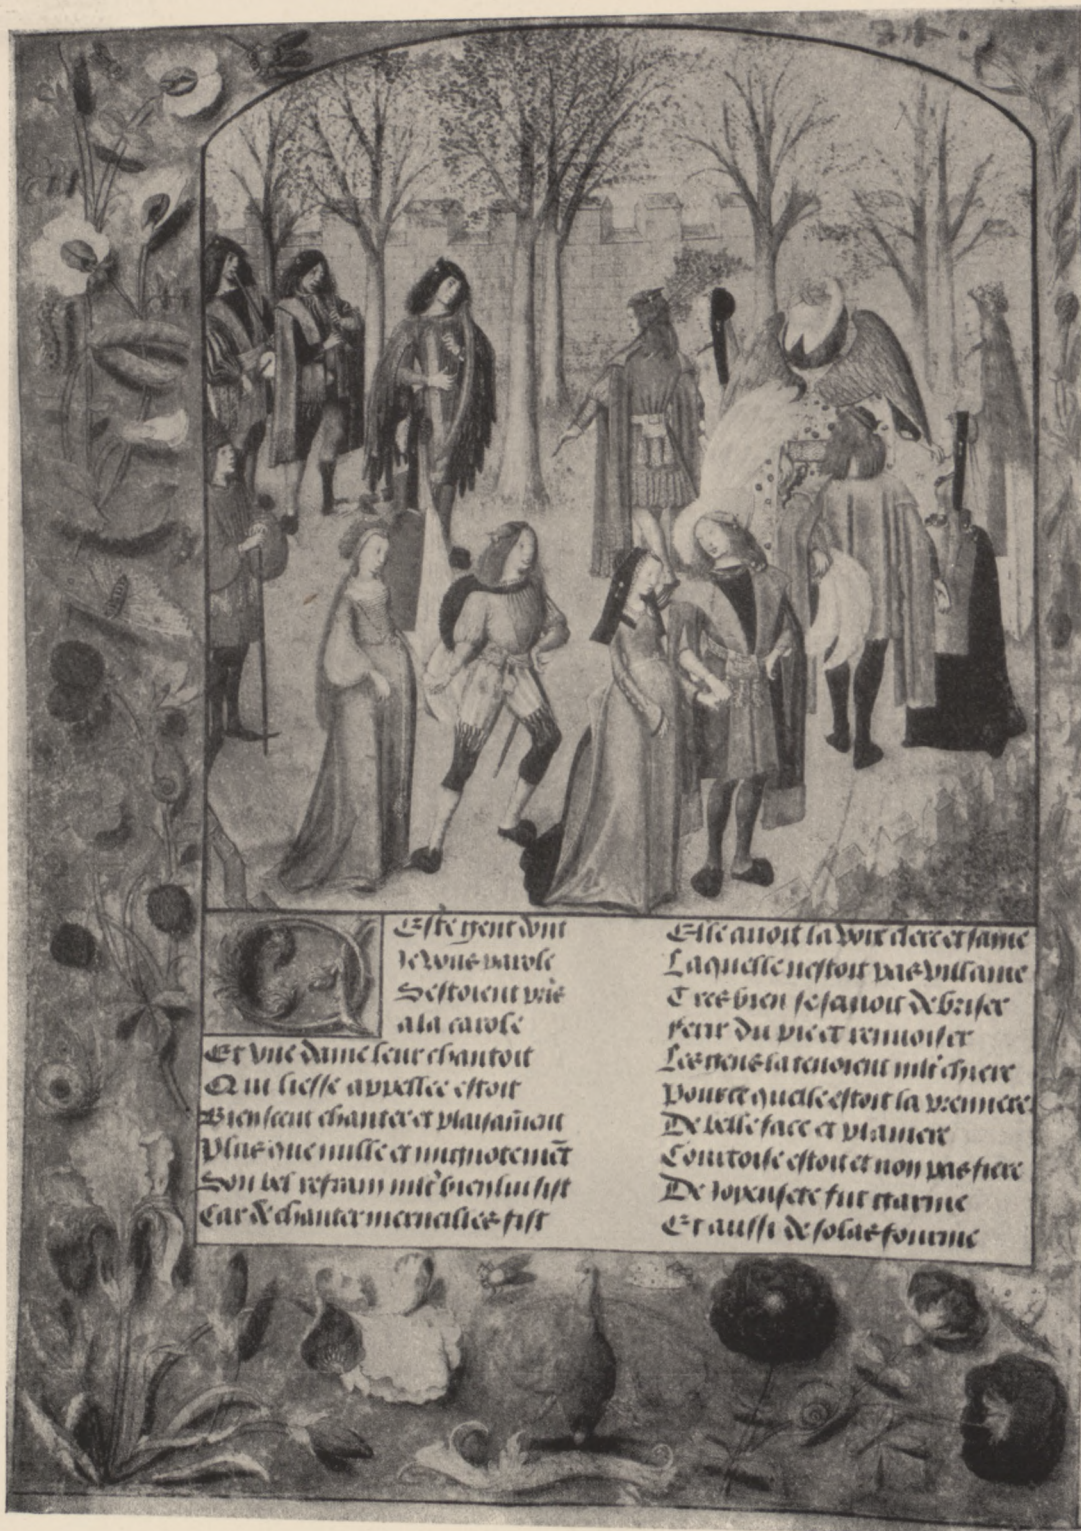 Ceste gent dont
Je vous parole
Sestoient pris
a la carole
Et vne dame leur chantoit
Qui liesse appellee estoit
Bien sceut chanter et plaisamment
Plus que nulle et mignotemēt
Son bel refrain mlt bien lui sist
Car de chanter merueilles fist
Elle auoit la voix clere et saine
Laquelle nestoit pas villaine
Tres bien se sauoit debriser
ferir du pie et renuoiser
Les gens la tenoient mlt chiere
Pource quelle estoit la premiere
De belle face et planiere
Courtoise estoit et non pas fiere
De fut
Et aussi de solas